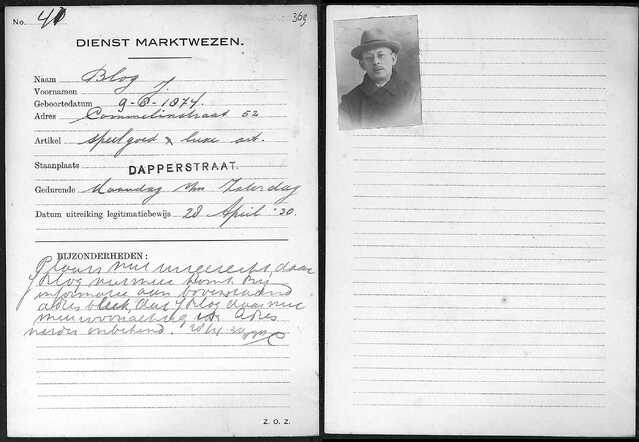 No. 41
369
DIENST MARKTWEZEN.
Naam Blog
Voornamen J.
Geboortedatum 9-8-1874.
Adres Commelinstraat 52
Artikel speelgoed & luxe art.
Staanplaats DAPPERSTRAAT.
Gedurende Maandag t/m Zaterdag
Datum uitreiking legitimatiebewijs 28 April '20.
BIJZONDERHEDEN:
Plaats niet ingenomen, daar
J Blog niet meer komt. Bij
informatie aan bovenstaand
adres bleek, dat J Blog daar niet
meer woonachtig is. Adres
verder onbekend.
Z. O. Z.